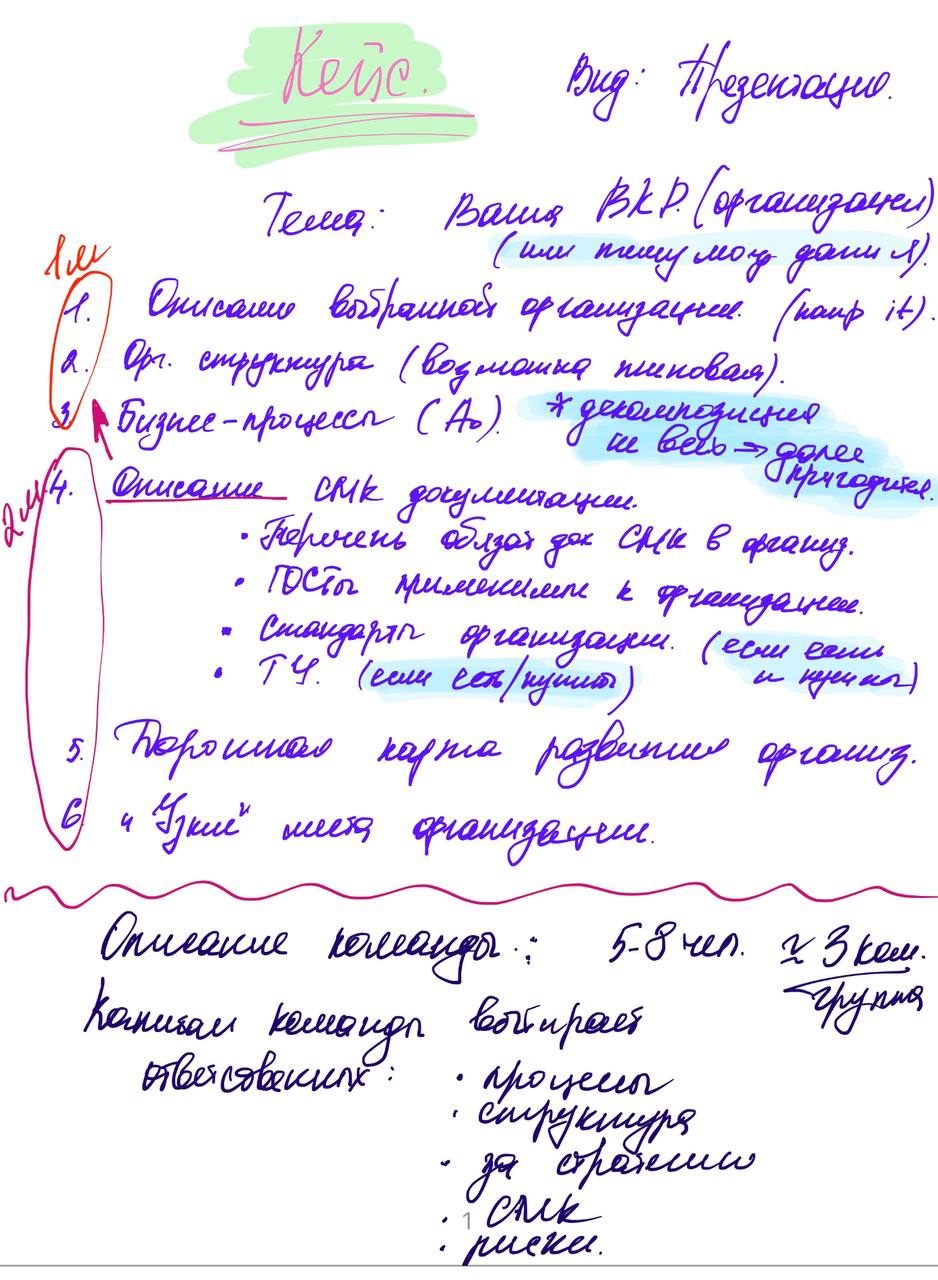 Кейс.
Вид: Презентация.
Тема: Ваша ВКР. (организация)
(или тему могу дать я).
1м
1. Описание выбранной организации. (напр it).
2. Орг. структура (возможна типовая).
3 Бизнес-процессы (А₀). * декомпозиция
не весь → далее
пригодится.
2м
4. Описание СМК документации.
• Перечень обязат док СМК в организ.
• ГОСТы применимые к организации.
• Стандарты организации. (если есть
и нужны)
• ТУ. (если есть/нужны)
5. Дорожная карта развития организ.
6. "Узкие" места организации.
Описание команды: 5-8 чел. ≃ 3 ком.
группа
Капитан команды выбирает
ответственных:
• процессы
• структура
• за стратегию
• СМК
• риски.
1